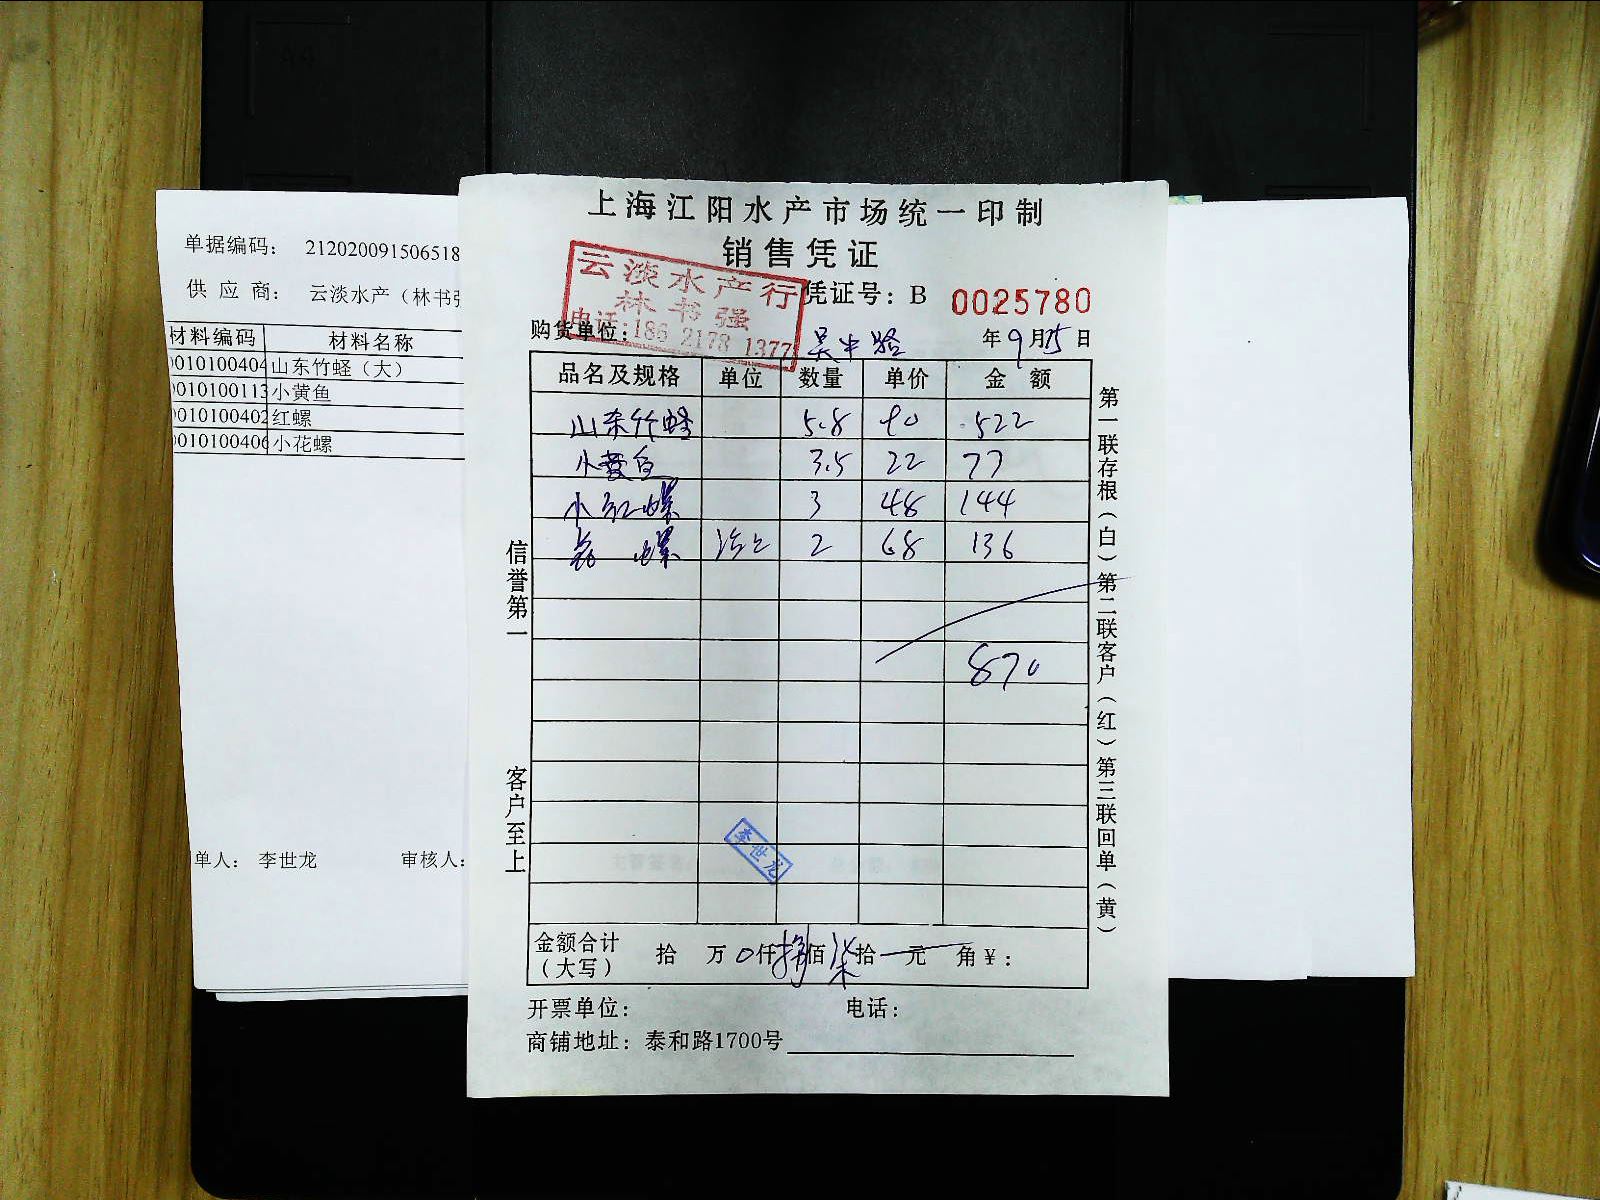 单据编码: 212020091506518
供 应 商: 云淡水产（林书强
材料编码 材料名称
0010100404 山东竹蛏（大）
0010100113 小黄鱼
0010100402 红螺
0010100406 小花螺
单人: 李世龙 审核人:
上海江阳水产市场统一印制
销售凭证
云淡水产行
林书强
电话:186 2178 1377
凭证号: B 0025780
购货单位: 吴中路 年 9 月 15 日
品名及规格 单位 数量 单价 金 额
山东竹蛏 5.8 90 522
小黄鱼 3.5 22 77
小红螺 3 48 144
花螺 2 68 136
870
李世龙
金额合计（大写） 拾 万 0 仟 捌 佰 柒 拾 元 角 ¥:
开票单位: 电话:
商铺地址: 泰和路1700号
信誉第一
客户至上
第一联存根（白）第二联客户（红）第三联回单（黄）